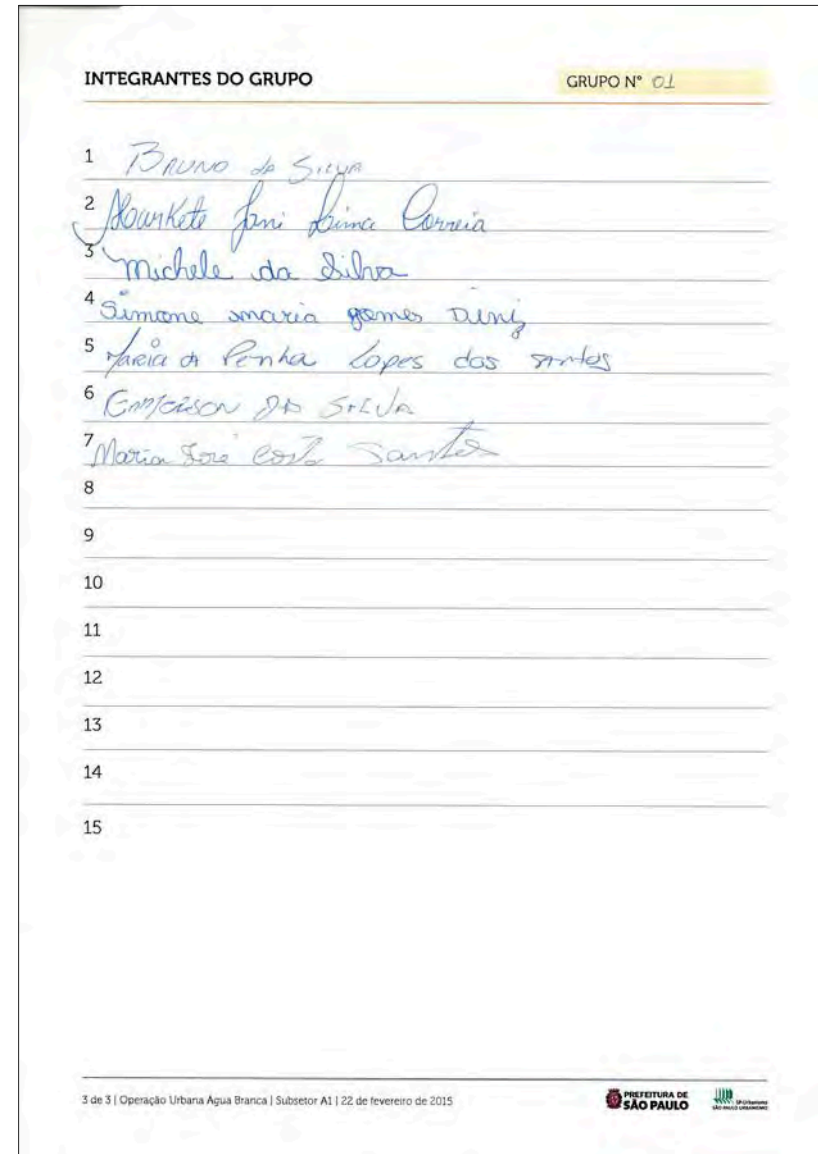 INTEGRANTES DO GRUPO
GRUPO Nº 01
1 BRUNO da SILVA
2 Jani Lima Correia
3 Michele da Silva
4 Simone maria gomes Diniz
5 Maria da Penha Lopes dos santos
6 EMERSON DA SILVA
7 Maria José Costa Santos
8
9
10
11
12
13
14
15
3 de 3 | Operação Urbana Água Branca | Subsetor A1 | 22 de fevereiro de 2015
PREFEITURA DE
SÃO PAULO
SP-Urbanismo
SÃO PAULO URBANISMO